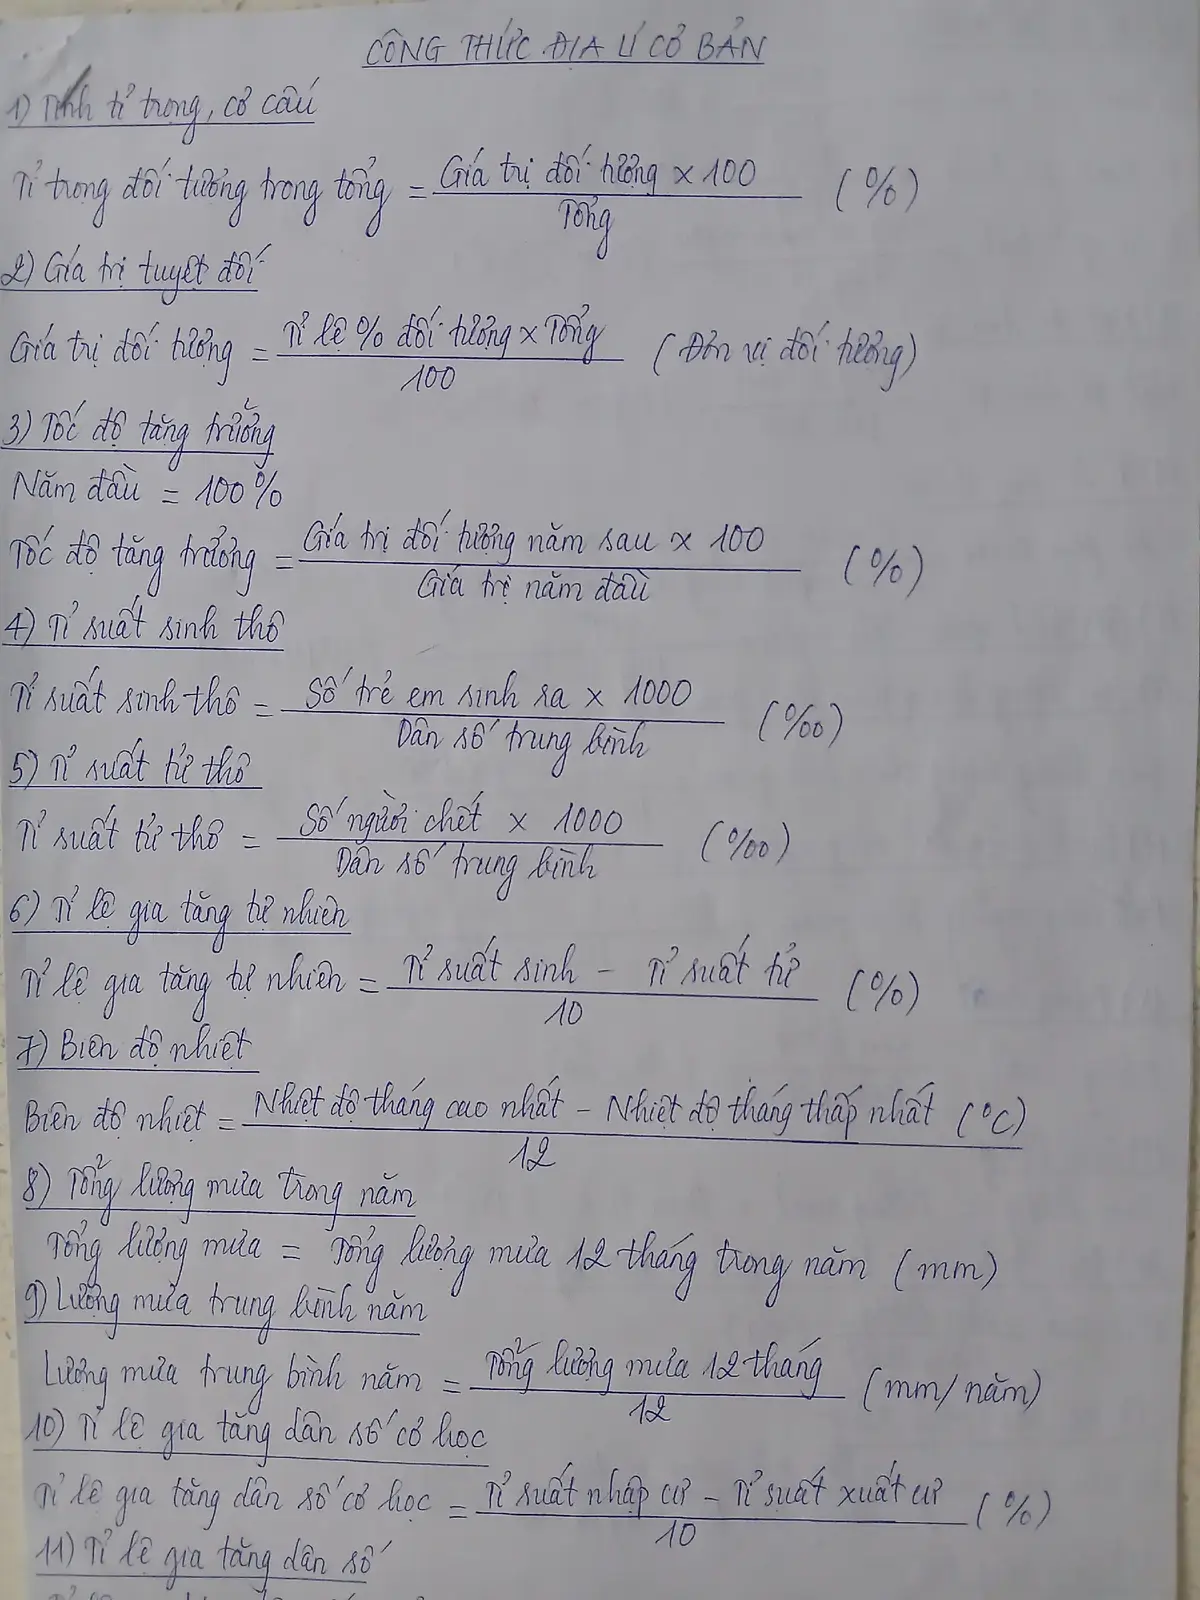 CÔNG THỨC ĐỊA LÍ CƠ BẢN
1) Tính tỉ trọng, cơ cấu
Tỉ trọng đối tượng trong tổng = Giá trị đối tượng x 100 / Tổng (%)
2) Giá trị tuyệt đối
Giá trị đối tượng = Tỉ lệ % đối tượng x Tổng / 100 (Đơn vị đối tượng)
3) Tốc độ tăng trưởng
Năm đầu = 100%
Tốc độ tăng trưởng = Giá trị đối tượng năm sau x 100 / Giá trị năm đầu (%)
4) Tỉ suất sinh thô
Tỉ suất sinh thô = Số trẻ em sinh ra x 1000 / Dân số trung bình (‰)
5) Tỉ suất tử thô
Tỉ suất tử thô = Số người chết x 1000 / Dân số trung bình (‰)
6) Tỉ lệ gia tăng tự nhiên
Tỉ lệ gia tăng tự nhiên = Tỉ suất sinh - Tỉ suất tử / 10 (%)
7) Biên độ nhiệt
Biên độ nhiệt = Nhiệt độ tháng cao nhất - Nhiệt độ tháng thấp nhất (°C) / 12
8) Tổng lượng mưa trong năm
Tổng lượng mưa = Tổng lượng mưa 12 tháng trong năm (mm)
9) Lượng mưa trung bình năm
Lượng mưa trung bình năm = Tổng lượng mưa 12 tháng / 12 (mm/năm)
10) Tỉ lệ gia tăng dân số cơ học
Tỉ lệ gia tăng dân số cơ học = Tỉ suất nhập cư - Tỉ suất xuất cư / 10 (%)
11) Tỉ lệ gia tăng dân số